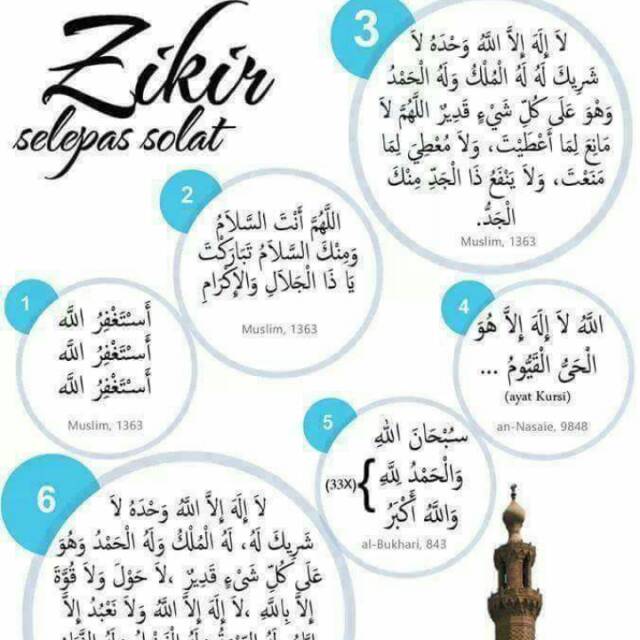 Zikir
selepas solat
1
أَسْتَغْفِرُ اللَّه
أَسْتَغْفِرُ اللَّه
أَسْتَغْفِرُ اللَّه
Muslim, 1363
2
اللَّهُمَّ أَنْتَ السَّلاَمُ
وَمِنْكَ السَّلاَمُ تَبَارَكْتَ
يَا ذَا الْجَلاَلِ وَالإِكْرَامِ
Muslim, 1363
3
لاَ إِلَهَ إِلاَّ اللَّهُ وَحْدَهُ لاَ
شَرِيكَ لَهُ لَهُ الْمُلْكُ وَلَهُ الْحَمْدُ
وَهُوَ عَلَى كُلِّ شَيْءٍ قَدِيرٌ اللَّهُمَّ لاَ
مَانِعَ لِمَا أَعْطَيْتَ، وَلاَ مُعْطِيَ لِمَا
مَنَعْتَ، وَلاَ يَنْفَعُ ذَا الْجَدِّ مِنْكَ
الْجَدُّ.
Muslim, 1363
4
اللَّهُ لاَ إِلَهَ إِلاَّ هُوَ
الْحَيُّ الْقَيُّومُ ...
(ayat Kursi)
an-Nasaie, 9848
5
سُبْحَانَ اللهِ
وَالْحَمْدُ لِلَّهِ
(33X)
وَاللَّهُ أَكْبَرُ
al-Bukhari, 843
6
لاَ إِلَهَ إِلاَّ اللَّهُ وَحْدَهُ لاَ
شَرِيكَ لَهُ، لَهُ الْمُلْكُ وَلَهُ الْحَمْدُ وَهُوَ
عَلَى كُلِّ شَيْءٍ قَدِيرٌ ،لاَ حَوْلَ وَلاَ قُوَّةَ
إِلاَّ بِاللَّهِ ،لاَ إِلَهَ إِلاَّ اللَّهُ وَلاَ نَعْبُدُ إِلاَّ